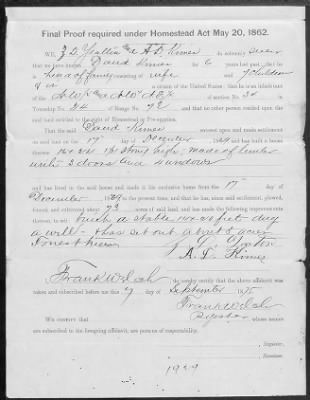 Final Proof required under Homestead Act May 20, 1862.
WE, J. D. & A. L. Kimes do solemnly swear
that we have known David Kimes for 6 years last past; that he is
head of family consisting of wife and 7 children
& is a citizen of the United States; that he is an inhabitant
of the of section No. 26 in
Township No. 24 of Range No. 72 and that no other person resided upon the
said land entitled to the right of Homestead or Pre-emption.
That the said David Kimes entered upon and made settlement
on said land on the 17 day of December 1869 and has built a house
thereon 16 x 24 1½ story high made of lumber
with 3 doors and 4 windows
and has lived in the said house and made it his exclusive home from the 17 day of
December 1869 to the present time, and that he has, since said settlement, plowed,
fenced, and cultivated about 72 acres of said land, and has made the following improvements
thereon, to wit: built a stable 14 x 28 feet dug
a well - has set out about 2 acres
forest trees
A. L. Kimes
I, Frank Welch do hereby certify that the above affidavit was
taken and subscribed before me this 7 day of September 1875
Frank Welch
Register
WE CERTIFY that whose names
are subscribed to the foregoing affidavit, are persons of respectability.
, Register.
, Receiver.